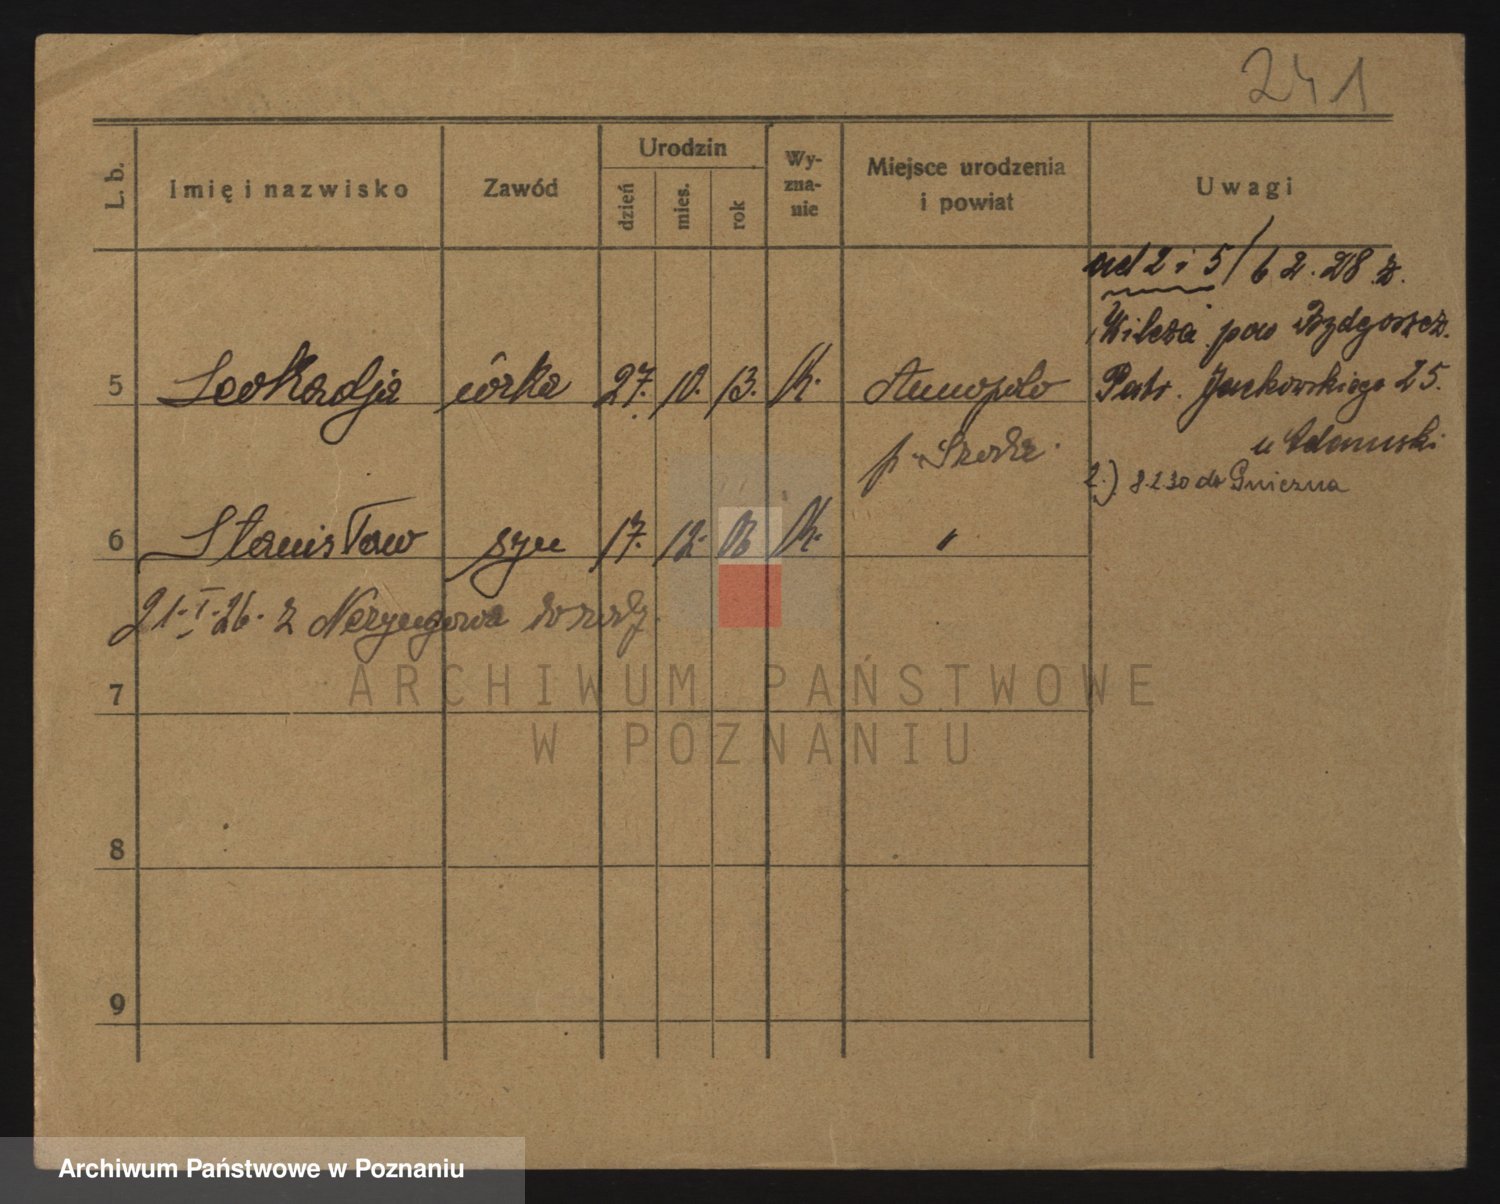 241
L. b.
Imię i nazwisko
Zawód
Urodzin
dzień
mies.
rok
Wy-
zna-
nie
Miejsce urodzenia
i powiat
Uwagi
ad 2 i 5/ 6 2. 28 z.
Wilcza pow Bydgoszcz.
Patr. Jackowskiego 25.
u Adamski
2.) 8.2.30 do Gniezna
5 Leokadja córka 27. 10. 13. K. Annopole
p. Środa.
6 Stanisław syn 17. 12. K. "
21. I. 26. z
7
8
9
ARCHIWUM PAŃSTWOWE
W POZNANIU
Archiwum Państwowe w Poznaniu